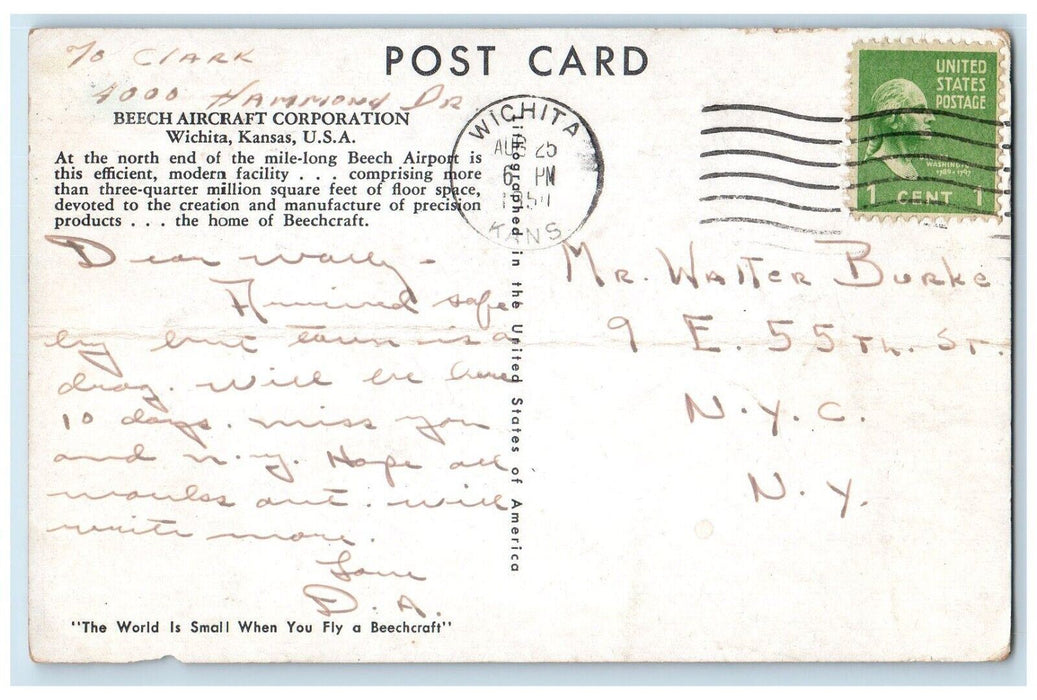 % CLARK
4000 HAMMOND DR
POST CARD
BEECH AIRCRAFT CORPORATION
Wichita, Kansas, U.S.A.
At the north end of the mile-long Beech Airport is
this efficient, modern facility . . . comprising more
than three-quarter million square feet of floor space,
devoted to the creation and manufacture of precision
products . . . the home of Beechcraft.
WICHITA
AUG 25
6 PM
KANS.
UNITED
STATES
POSTAGE
WASHINGTON
1789-1797
1 CENT 1
Dear Wally -
Arrived safe
by but town is a
drag. Will be here
10 days. miss you
and n.y. Hope all
works out. will
write more.
Love
D. A.
"The World Is Small When You Fly a Beechcraft"
Lithographed in the United States of America
MR. WALTER BURKE
9 E. 55TH. ST.
N.Y.C.
N.Y.